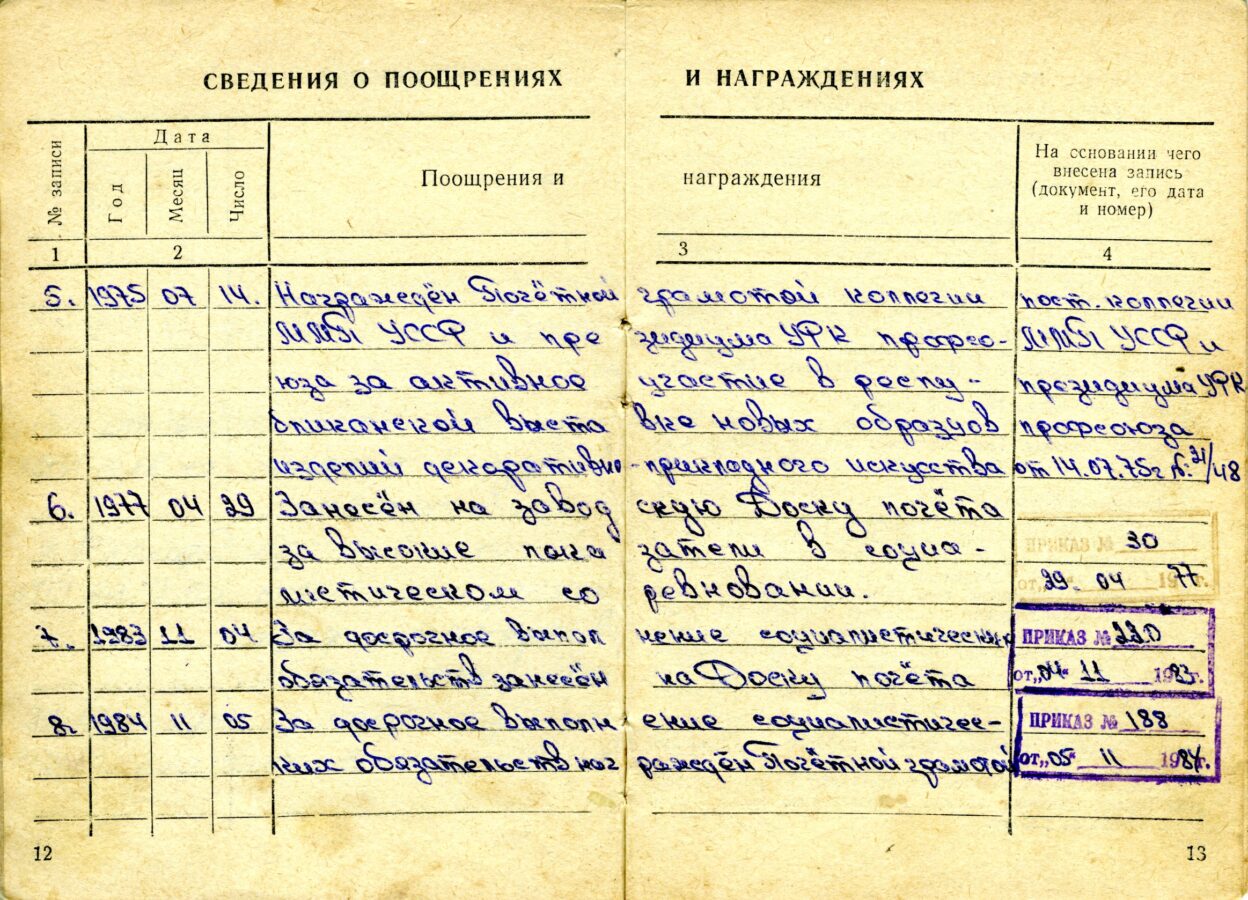 СВЕДЕНИЯ О ПООЩРЕНИЯХ И НАГРАЖДЕНИЯХ
№ записи
Дата
Год
Месяц
Число
Поощрения и награждения
На основании чего
внесена запись
(документ, его дата
и номер)
1 2 3 4
5. 1975 07 14. Награждён Почётной грамотой коллегии пост. коллегии
ММП УССР и президиума УРК профсо- ММП УССР и
юза за активное участие в респу- президиума УРК
бликанской выставке новых образцов профсоюза
изделий декоративно-прикладного искусства от 14.07.75г №31/48
6. 1977 04 29 Занесён на заводскую Доску почёта
за высокие показатели в социа- ПРИКАЗ № 30
листическом соревновании. от 29. 04 1977г.
7. 1983 11 04 За досрочное выполнение социалистических ПРИКАЗ № 220
обязательств занесён на Доску почёта от „04" 11 1983г.
8. 1984 11 05 За досрочное выполнение социалистичес- ПРИКАЗ № 188
ких обязательств награждён Почётной грамотой от „05" 11 1984г.
12 13